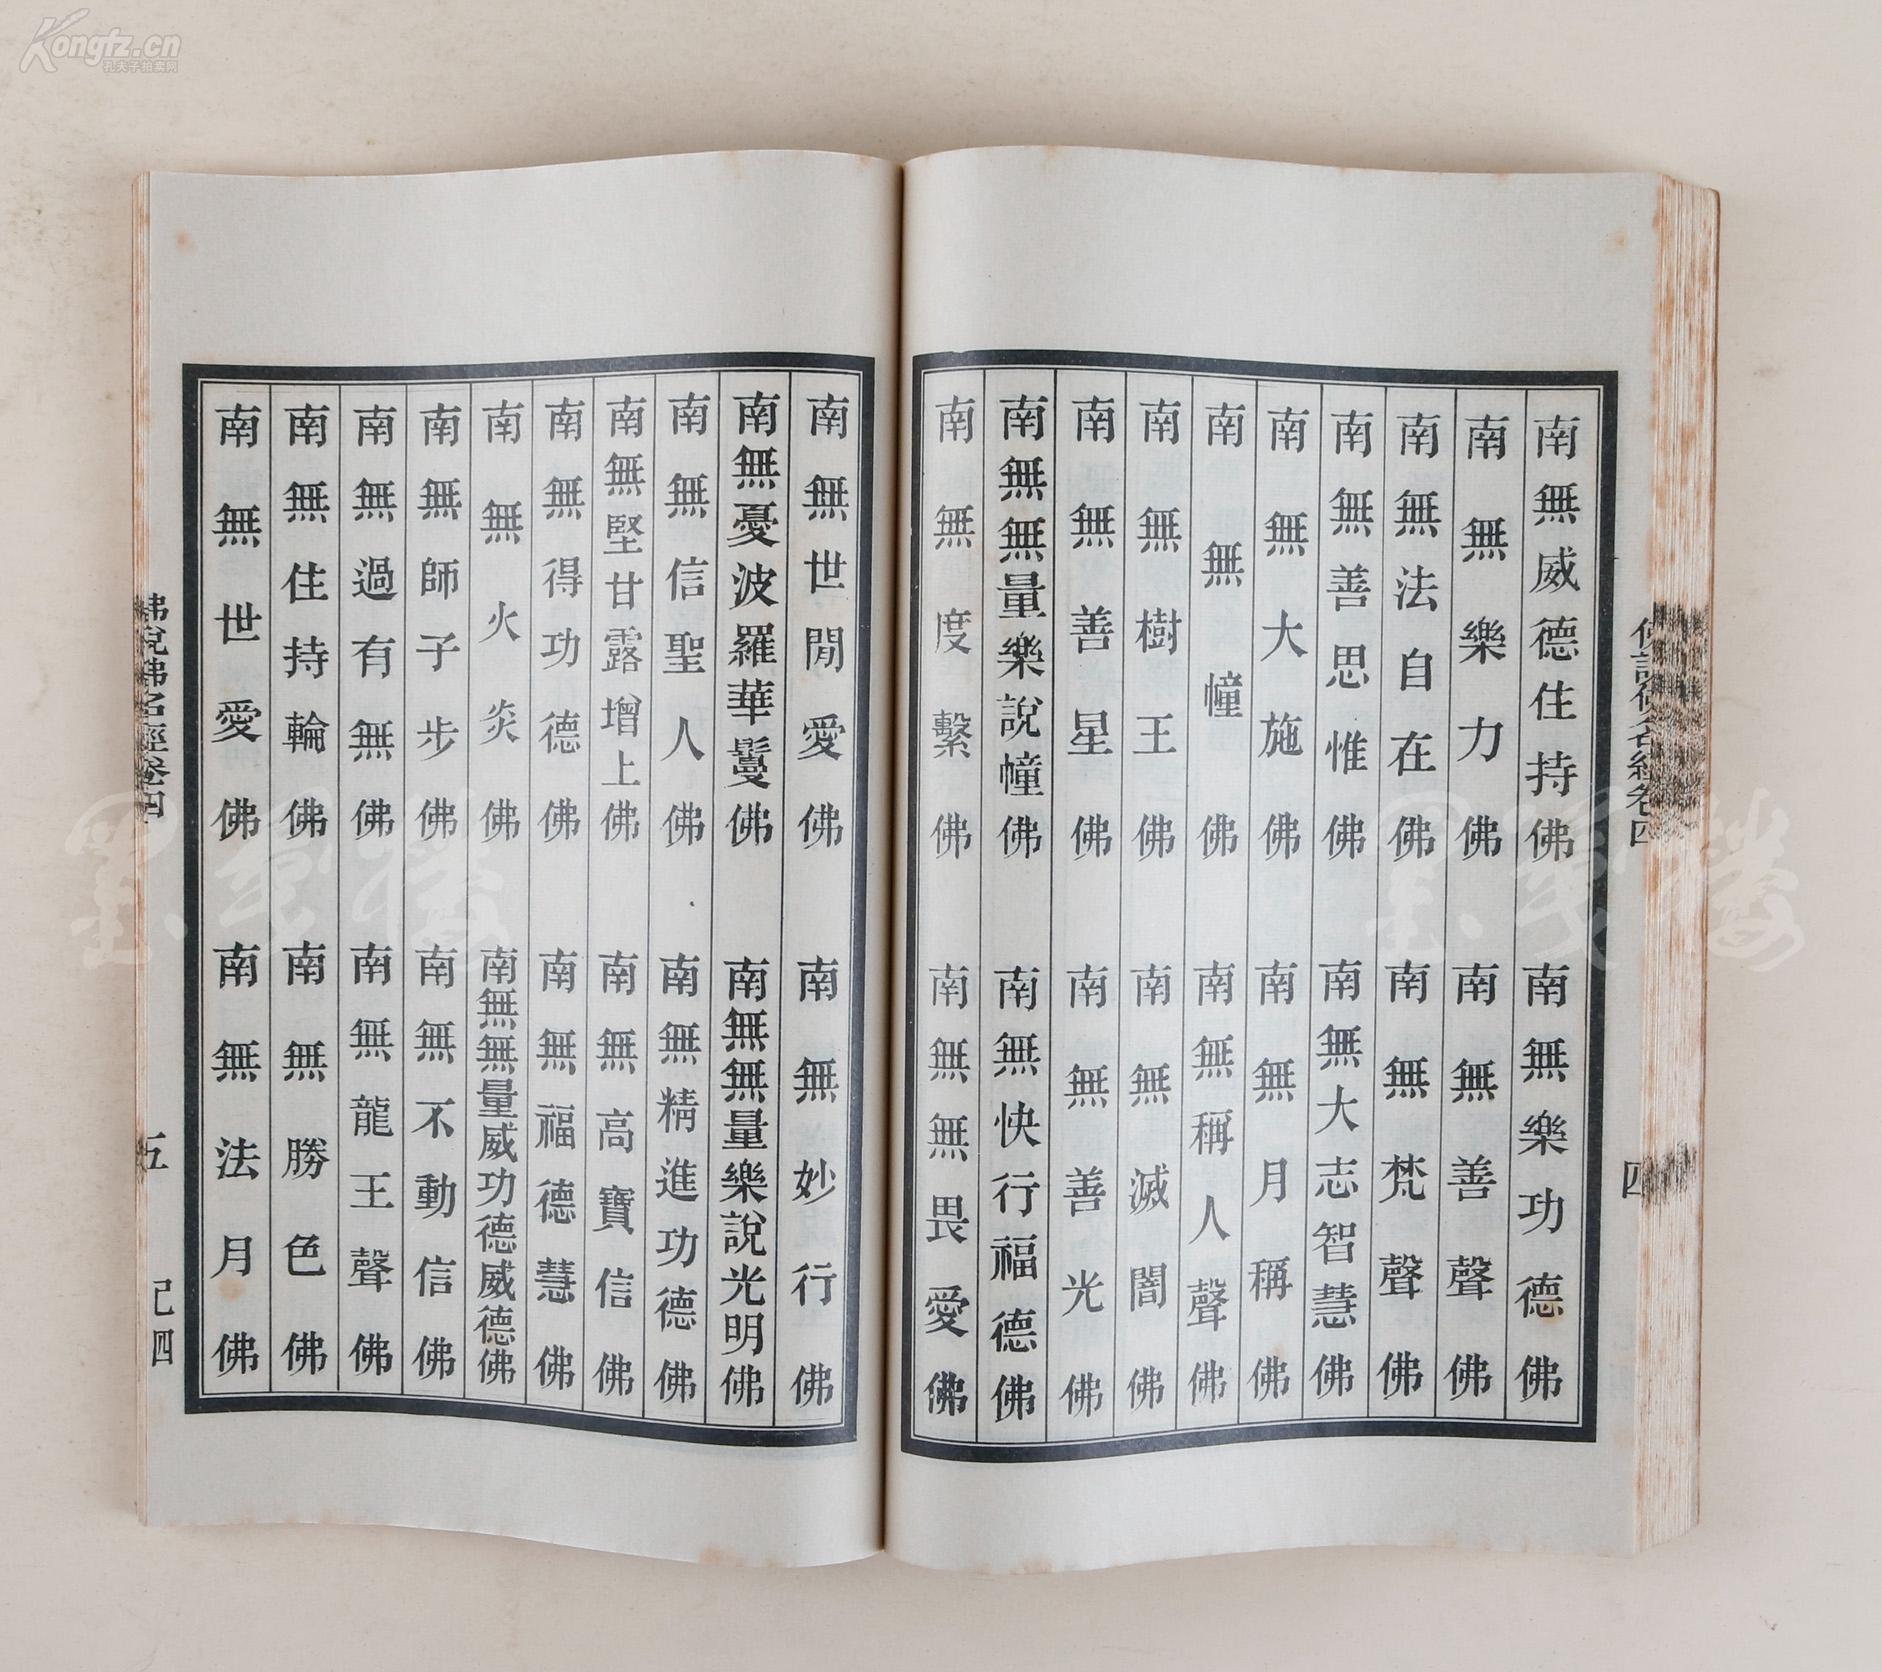 Kongfz.cn
孔夫子拍卖网
南無威德住持佛 南無樂功德佛
南無樂力佛 南無善聲佛
南無法自在佛 南無梵聲佛
南無善思惟佛 南無大志智慧佛
南無大施佛 南無月稱佛
南無幢佛 南無稱人聲佛
南無樹王佛 南無滅闇佛
南無善星佛 南無善光佛
南無無量樂說幢佛 南無快行福德佛
南無度繫佛 南無無畏愛佛
佛說佛名經卷四
四
南無世閒愛佛 南無妙行佛
南無憂波羅華鬘佛 南無無量樂說光明佛
南無信聖人佛 南無精進功德佛
南無堅甘露增上佛 南無高寶信佛
南無得功德佛 南無福德慧佛
南無火炎佛 南無無量威功德威德佛
南無師子步佛 南無不動信佛
南無過有無佛 南無龍王聲佛
南無住持輪佛 南無勝色佛
南無世愛佛 南無法月佛
佛說佛名經卷四
五
己四